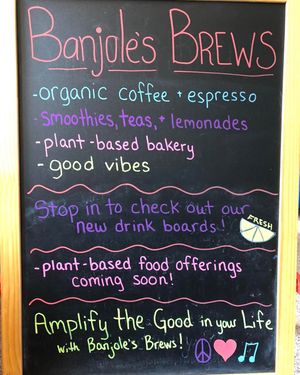 Banjole's BREWS
-organic coffee + espresso
-Smoothies, teas, + lemonades
-plant-based bakery
-good vibes
Stop in to check out our
new drink boards!
FRESH
-plant-based food offerings
coming soon!
Amplify the Good in your Life
with Banjole's Brews!